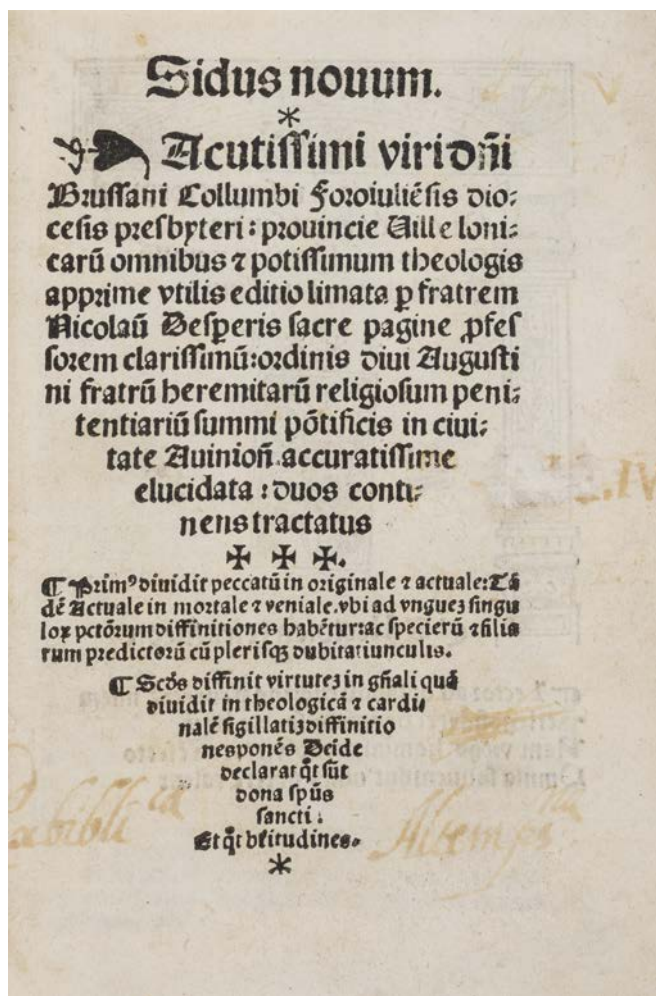 Sidus nouum.
*
Acutissimi viri dñi
Brussani Collumbi Foroiuliẽsis dio-
cesis presbyteri : prouincie Uille loni-
carũ omnibus ⁊ potissimum theologis
apprime vtilis editio limata ꝑ fratrem
Nicolaũ Desperis sacre pagine ꝓfes
sorem clarissimũ:ordinis diui Augusti
ni fratrũ heremitarũ religiosum peni-
tentiariũ summi põtificis in ciui-
tate Auinioñ.accuratissime
elucidata : duos conti-
nens tractatus
✠ ✠ ✠.
¶ Primꝰ diuidit peccatũ in originale ⁊ actuale:Tã
dẽ Actuale in mortale ⁊ veniale.vbi ad vnguez singu
loꝝ pctõrum diffinitiones habẽtur:ac specierũ ⁊ filia
rum predictorũ cũ plerisqꝫ dubitatiunculis.
¶ Scđs diffinit virtutez in gñali quã
diuidit in theologicã ⁊ cardi-
nalẽ sigillatiz diffinitio
nes ponẽs Deide
declarat q̃t sũt
dona spũs
sancti :
Et q̃t bt̃itudines.
*
bibli ca
Altemps